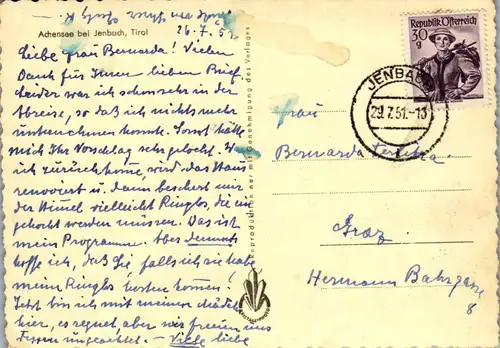 Achensee bei Jenbach, Tirol
26.7.51
Liebe Frau Bernarda! Vielen
Dank für Ihren lieben Brief
leider war ich schon sehr in der
Abreise, so daß ich nichts mehr
unternehmen konnte. Sonst hätte
mich Ihr Vorschlag sehr gelockt. Wenn
ich zurückkomme wird das Haus
renoviert u. dann beschert mir
der Himmel vielleicht Ringlos, die ein
gekocht werden müssen. Das ist
mein Programm. Aber dennoch
hoffe ich, daß Sie falls ich sie habe
meine Ringlos kosten kommen!
Jetzt bin ich mit meinen
hier, es regnet, aber wir freuen uns
ungeachtet. – Viele liebe
Reproduktion nur mit Genehmigung des Verlages
Republik Österreich
30 g
JENBACH
29.7.51.-13
Frau
Bernarda
Graz
Hermann Bahrgasse
8